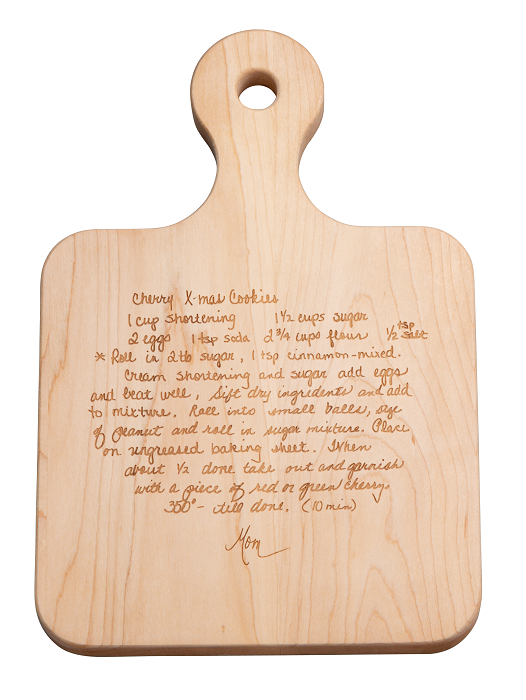 Cherry X-mas Cookies
1 cup shortening 1 1/2 cups sugar
2 eggs 1 tsp soda 2 3/4 cups flour 1/2 tsp salt
* Roll in 2 tb sugar, 1 tsp cinnamon-mixed.
Cream shortening and sugar add eggs
and beat well, sift dry ingridents and add
to mixture. Roll into small balls, size
of peanut and roll in sugar mixture. Place
on ungreased baking sheet. When
about 1/2 done take out and garnish
with a piece of red or green cherry.
350° - till done. (10 min)
Mom